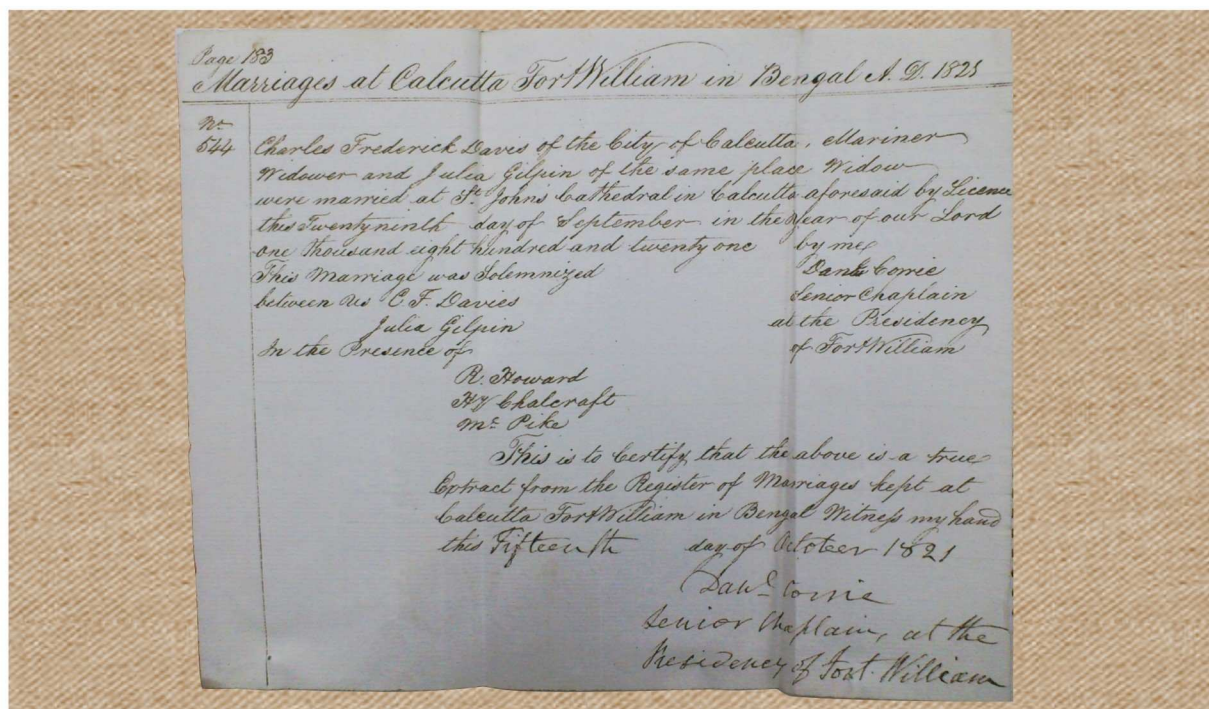 Page 183
Marriages at Calcutta Fort William in Bengal A. D. 1821
No
544 Charles Frederick Davis of the City of Calcutta, Mariner
Widower and Julia Gilpin of the same place Widow
were married at St Johns Cathedral in Calcutta aforesaid by Licence
this Twenty ninth day of September in the Year of our Lord
one thousand eight hundred and twenty one by me
This Marriage was Solemnized Danl Corrie
between us C. F. Davies Senior Chaplain
Julia Gilpin at the Presidency
In the Presence of of Fort William
R. Howard
Hy Chalcraft
Mr Pike
This is to Certify that the above is a true
Extract from the Register of Marriages kept at
Calcutta Fort William in Bengal Witness my hand
this Fifteenth day of October 1821
Danl Corrie
Senior Chaplain, at the
Presidency of Fort William